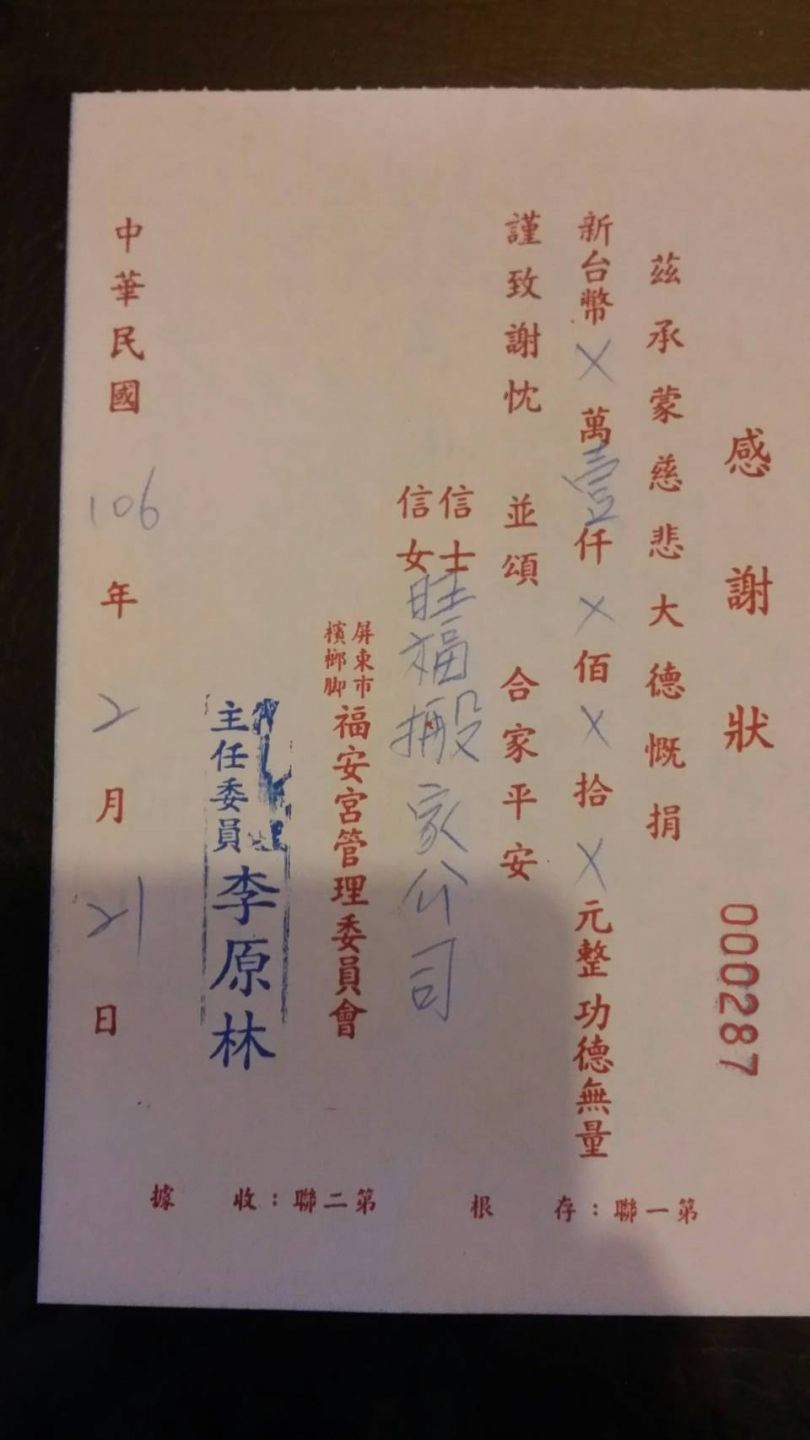 感謝狀
000287
茲承蒙慈悲大德慨捐
新台幣X萬壹仟X佰X拾X元整功德無量
謹致謝忱 並頌 合家平安
信士
信女
旺福搬家公司
屏東市
檳榔脚
福安宮管理委員會
主任委員 李原林
中華民國 106 年 2 月 21 日
第一聯：存根
第二聯：收據